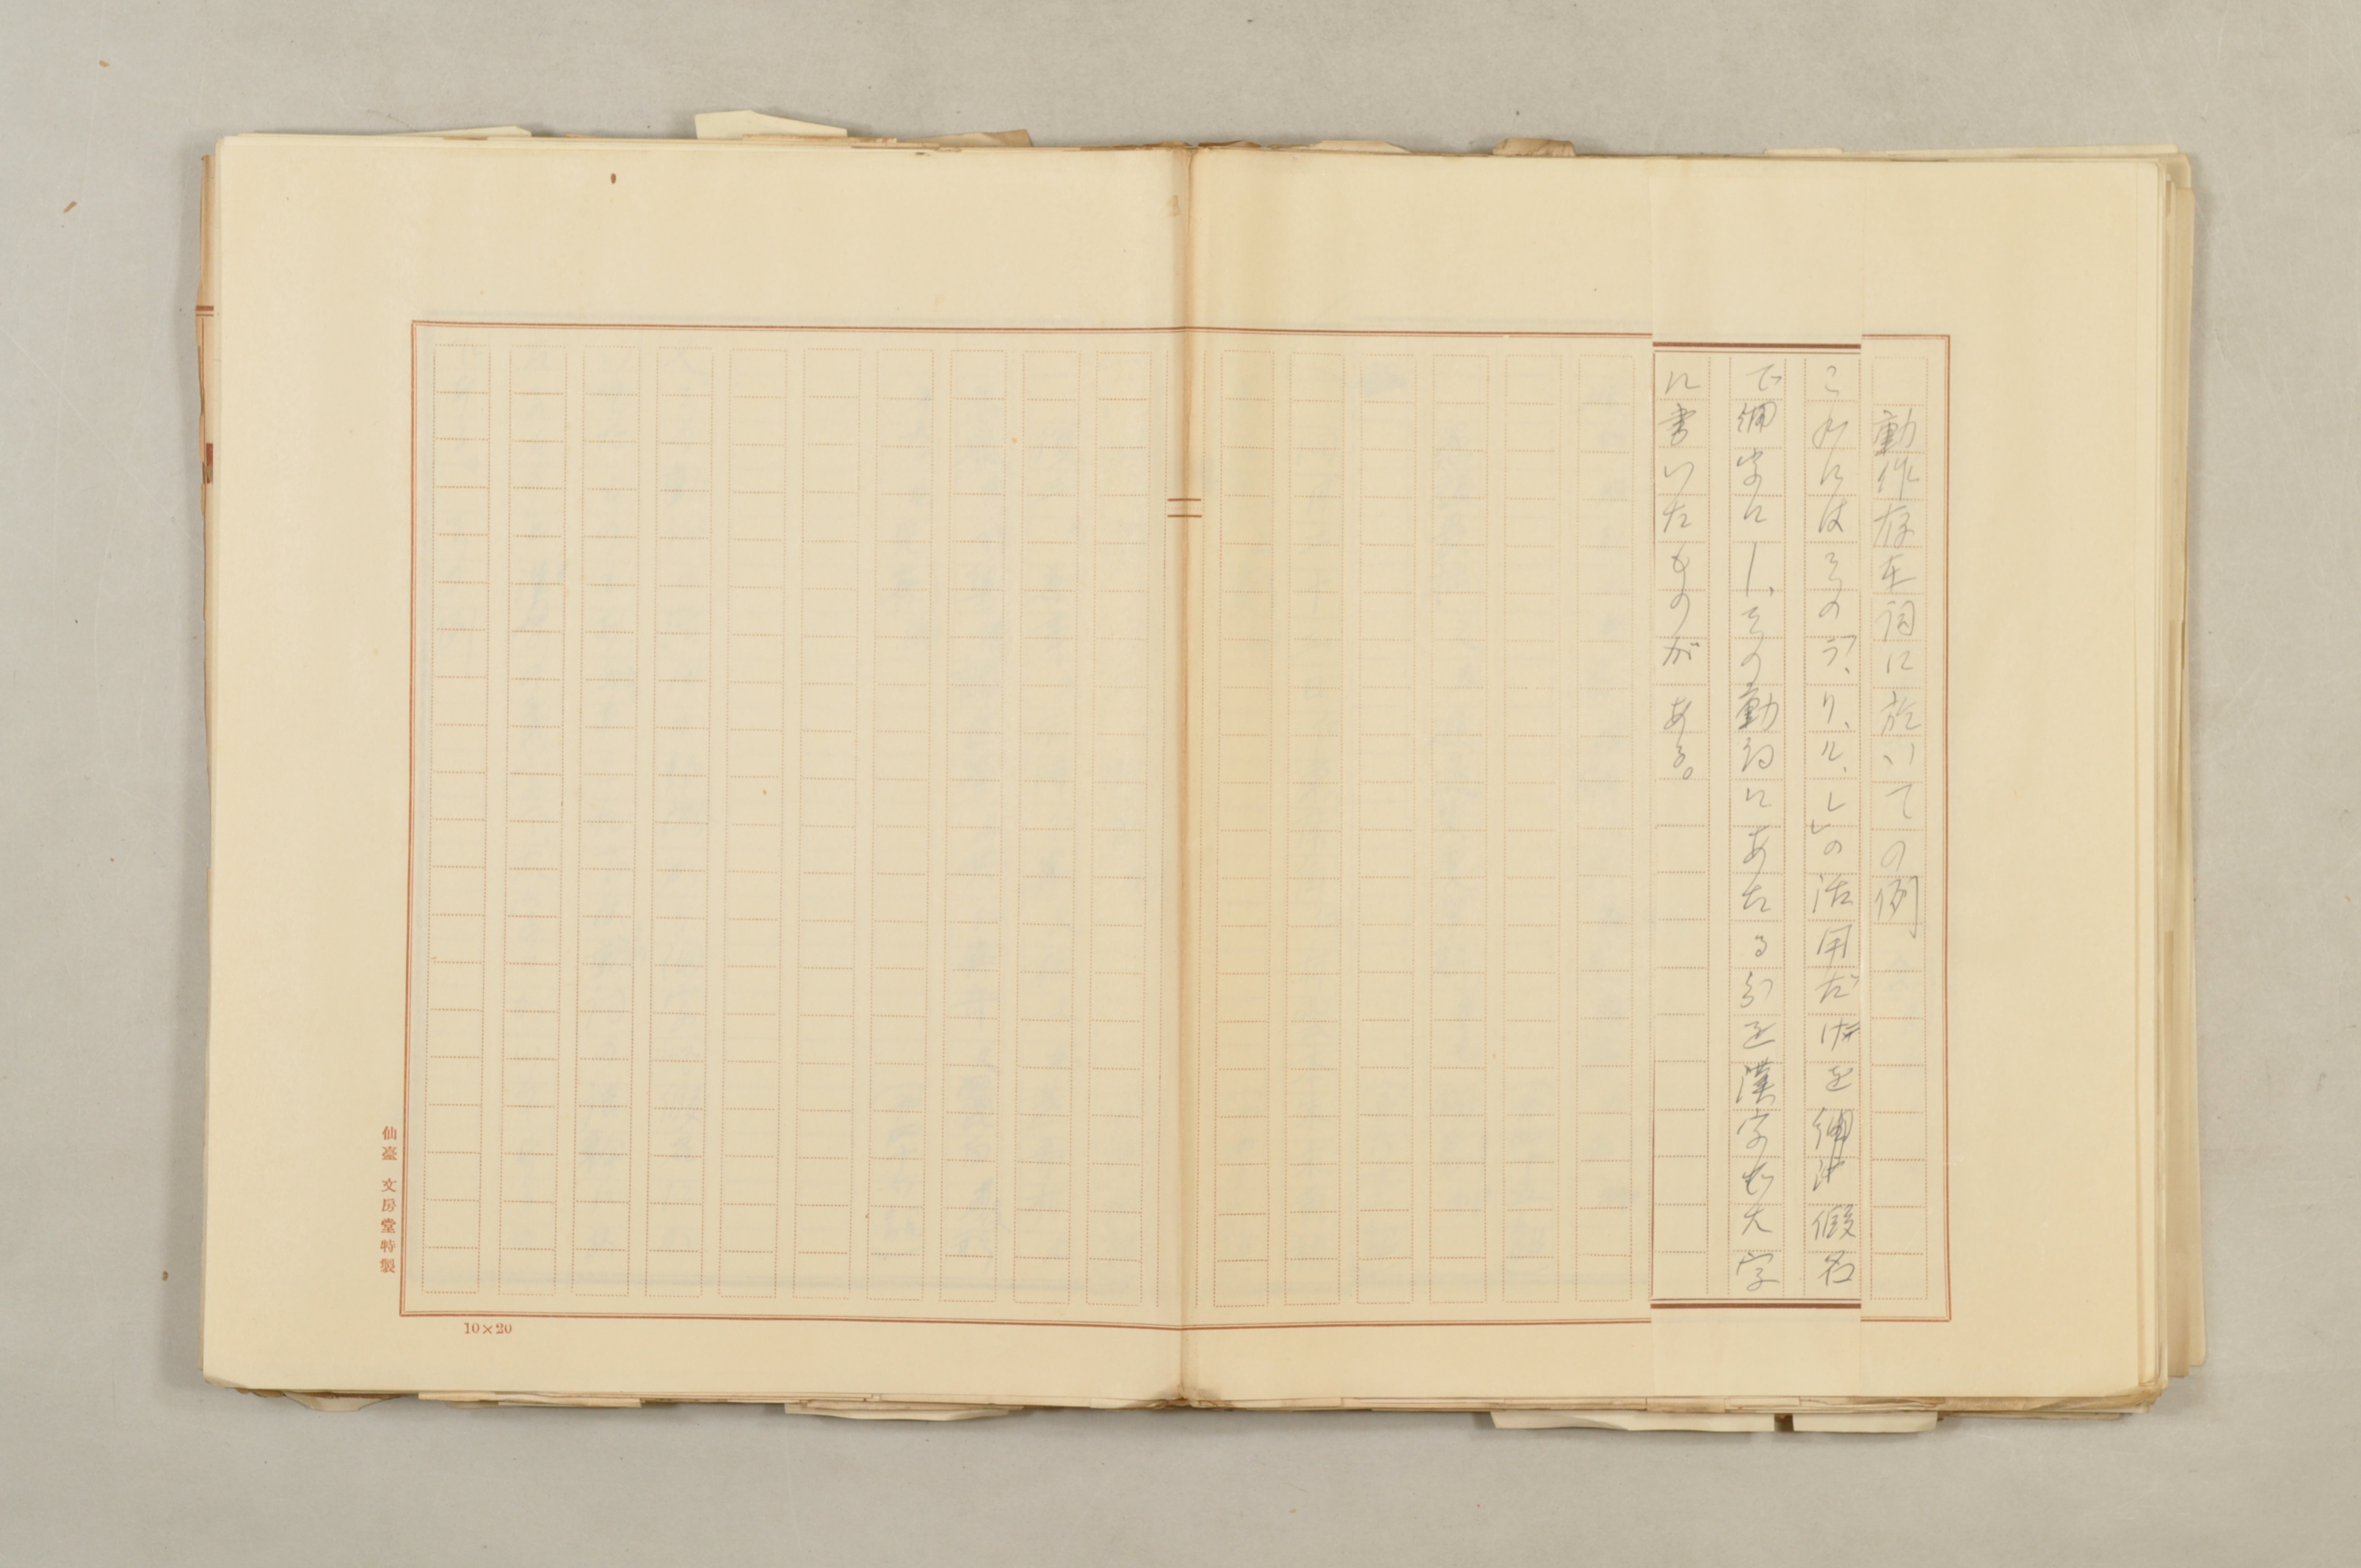 動作存在詞に於いての例
これにはその「ラ、リ、ル、レ」の活用だけを片假名
で細字にし、その動詞にあたる分を漢字で大字
に書いたものがある。
仙臺 文房堂特製
10×20